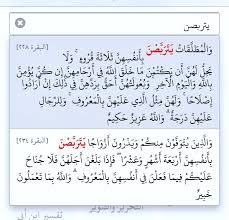 يتربصن
وَالْمُطَلَّقَاتُ يَتَرَبَّصْنَ [البقرة ٢٢٨]
بِأَنْفُسِهِنَّ ثَلَاثَةَ قُرُوءٍ ۚ وَلَا
يَحِلُّ لَهُنَّ أَنْ يَكْتُمْنَ مَا خَلَقَ اللَّهُ فِي أَرْحَامِهِنَّ إِنْ كُنَّ يُؤْمِنَّ
بِاللَّهِ وَالْيَوْمِ الْآخِرِ ۚ وَبُعُولَتُهُنَّ أَحَقُّ بِرَدِّهِنَّ فِي ذَٰلِكَ إِنْ أَرَادُوا
إِصْلَاحًا ۚ وَلَهُنَّ مِثْلُ الَّذِي عَلَيْهِنَّ بِالْمَعْرُوفِ ۚ وَلِلرِّجَالِ
عَلَيْهِنَّ دَرَجَةٌ ۗ وَاللَّهُ عَزِيزٌ حَكِيمٌ
وَالَّذِينَ يُتَوَفَّوْنَ مِنْكُمْ وَيَذَرُونَ أَزْوَاجًا [البقرة ٢٣٤]
يَتَرَبَّصْنَ بِأَنْفُسِهِنَّ أَرْبَعَةَ أَشْهُرٍ وَعَشْرًا ۖ فَإِذَا بَلَغْنَ أَجَلَهُنَّ فَلَا جُنَاحَ
عَلَيْكُمْ فِيمَا فَعَلْنَ فِي أَنْفُسِهِنَّ بِالْمَعْرُوفِ ۗ وَاللَّهُ بِمَا تَعْمَلُونَ
خَبِيرٌ
التحرير والتنوير
تفسير ابن